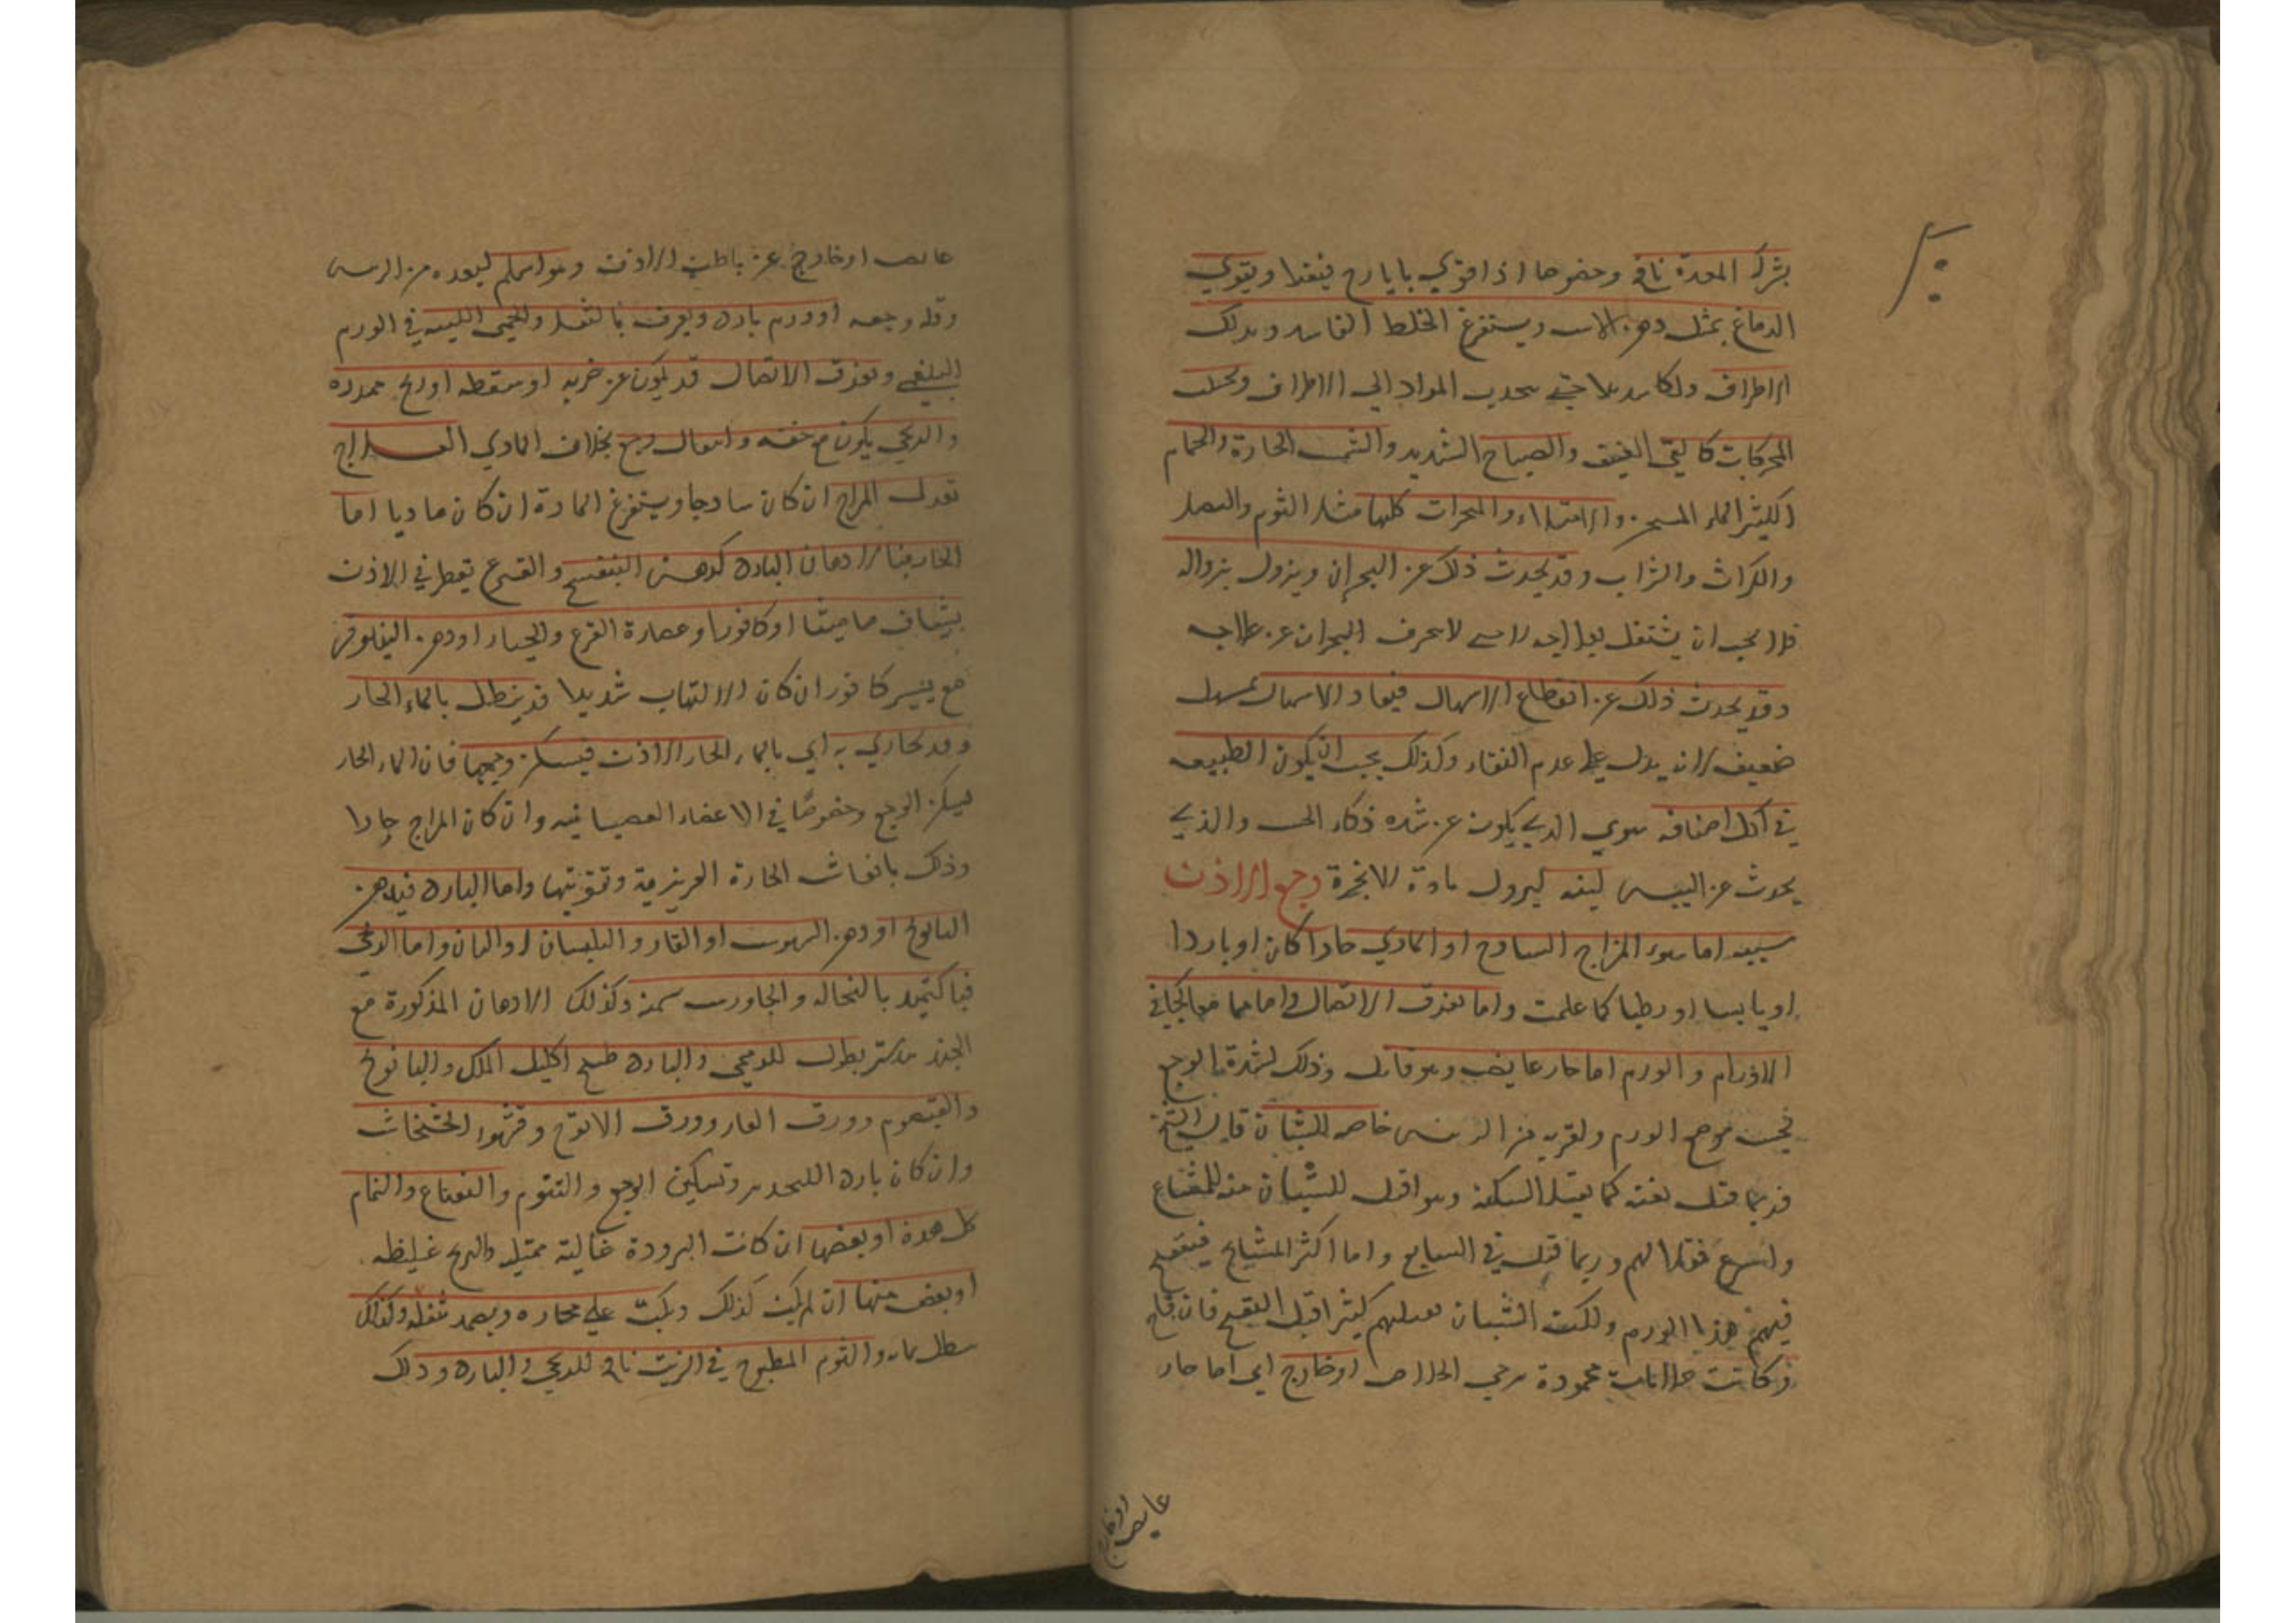 بشرك المعدة نافع وخصوصا اذا قوي بايارج فيقرا ويقوي
الدماغ بمثل دهن الاس ويستفرغ الخلط الفاسد وبدلك
الاطراف دلكا شديدا حتى يجذب المواد الي الاطراف ويجتنب
المحركات كالقي العنيف والصياح الشديد والشمس الحارة والحمام
الكثير الماء المسخن والامتلاء والمبخرات كلها مثل الثوم والبصل
والكراث والشراب وقد يحدث ذلك عن البحران ويزول بزواله
فلا يجب ان يشتغل بعلاجه لاسي لا يحرف البحران عن
وقد يحدث ذلك عن انقطاع الاسهال فيعاد الاسهال بمسهل
ضعيف لانه يدل علي عدم النقاء وكذلك يجب ان يكون الطبيعه
في كل اصنافه سوي الذي يكون عن شده ذكاء الحس والذي
يحدث عن اليبس لينه ليزول مادة الابخرة وجع الاذن
سببه اما سوء المزاج الساذج او المادي حارا كان او باردا
او يابسا او رطبا كما علمت واما تفرق الاتصال واما هما معا كما في
الاورام والورم اما حار غايص وهو قاتل وذلك لشدة الوجع
بحسب موضع الورم ولقربه من الرئيس خاصه للشبان قال الشيخ
فربما قتل بغته كما يقتل السكتة وهو اقتل للشبان منه للمشايخ
واسرع قتلا لهم وربما قتل في السابع واما اكثر المشايخ فيتقيح
فيهم هذا الورم ولكن الشبان يقتلهم كثيرا قبل التقيح فان قاح
وكانت علامات محمودة رجي الخلاص او خارج اي اما حار
غايص او خارج
غايص او خارج عن باطن الاذن وهو اسلم لبعده من الرئيس
وقله وجعه او ورم بارد ويعرف بالثقل والحمي اللينه في الورم
البلغمي وتفرق الاتصال قد يكون عن ضربه او سقطه او ريح ممدده
والريحي يكون مع خفه وانتقال وجع بخلاف المادي العلاج
تعدل المزاج ان كان ساذجا ويستفرغ المادة ان كان ماديا اما
الحار فبالادهان البارده كدهن البنفسج والقرع تقطر في الاذن
بشياف ماميثا او كافورا وعصارة القرع والخيار او دهن النيلوفر
مع يسير كافور ان كان الالتهاب شديدا قد ينطل بالماء الحار
وقد تحاذي به اي بالماء الحار الاذن فيسكن وجعها فان الماء الحار
يسكن الوجع وخصوصا في الاعضاء العصبانيه وان كان المزاج حارا
وذلك بانعاش الحارة الغريزية وتقويتها واما البارده فبدهن
البابونج او دهن السوسن او الغار والبلسان او البان واما الريحي
فبالتكميد بالنخاله والجاورس سخنه وكذلك الادهان المذكورة مع
الجند بيدستر نطول للريحي والبارد طبيخ اكليل الملك والبابونج
والقيصوم وورق الغار وورق الاترج وقشور الخشخاش
وان كان بارده للتخدير وتسكين الوجع والتنويم والنعناع والنمام
كل هذة او بعضها ان كانت البرودة غالية ممتله والريح غليظه
او بعض منها ان لم يكن كذلك ويكب علي بخاره ويضمد بثفله وكذلك
ينطل بمائه والثوم المطبوخ في الزيت نافع للريحي والبارد وذلك